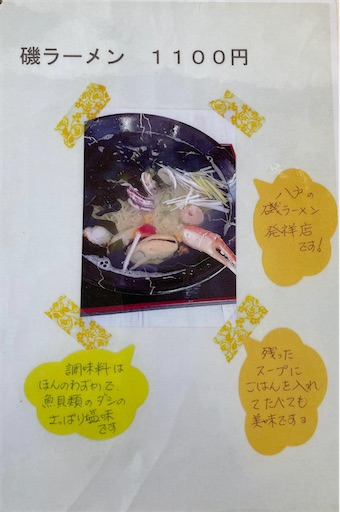 磯ラーメン　１１００円
八戸の
磯ラーメン
発祥店
です!
調味料は
ほんのわずかで、
魚貝類のダシの
さっぱり塩味
です
残った
スープに
ごはんを入れ
て食べても
美味ですョ